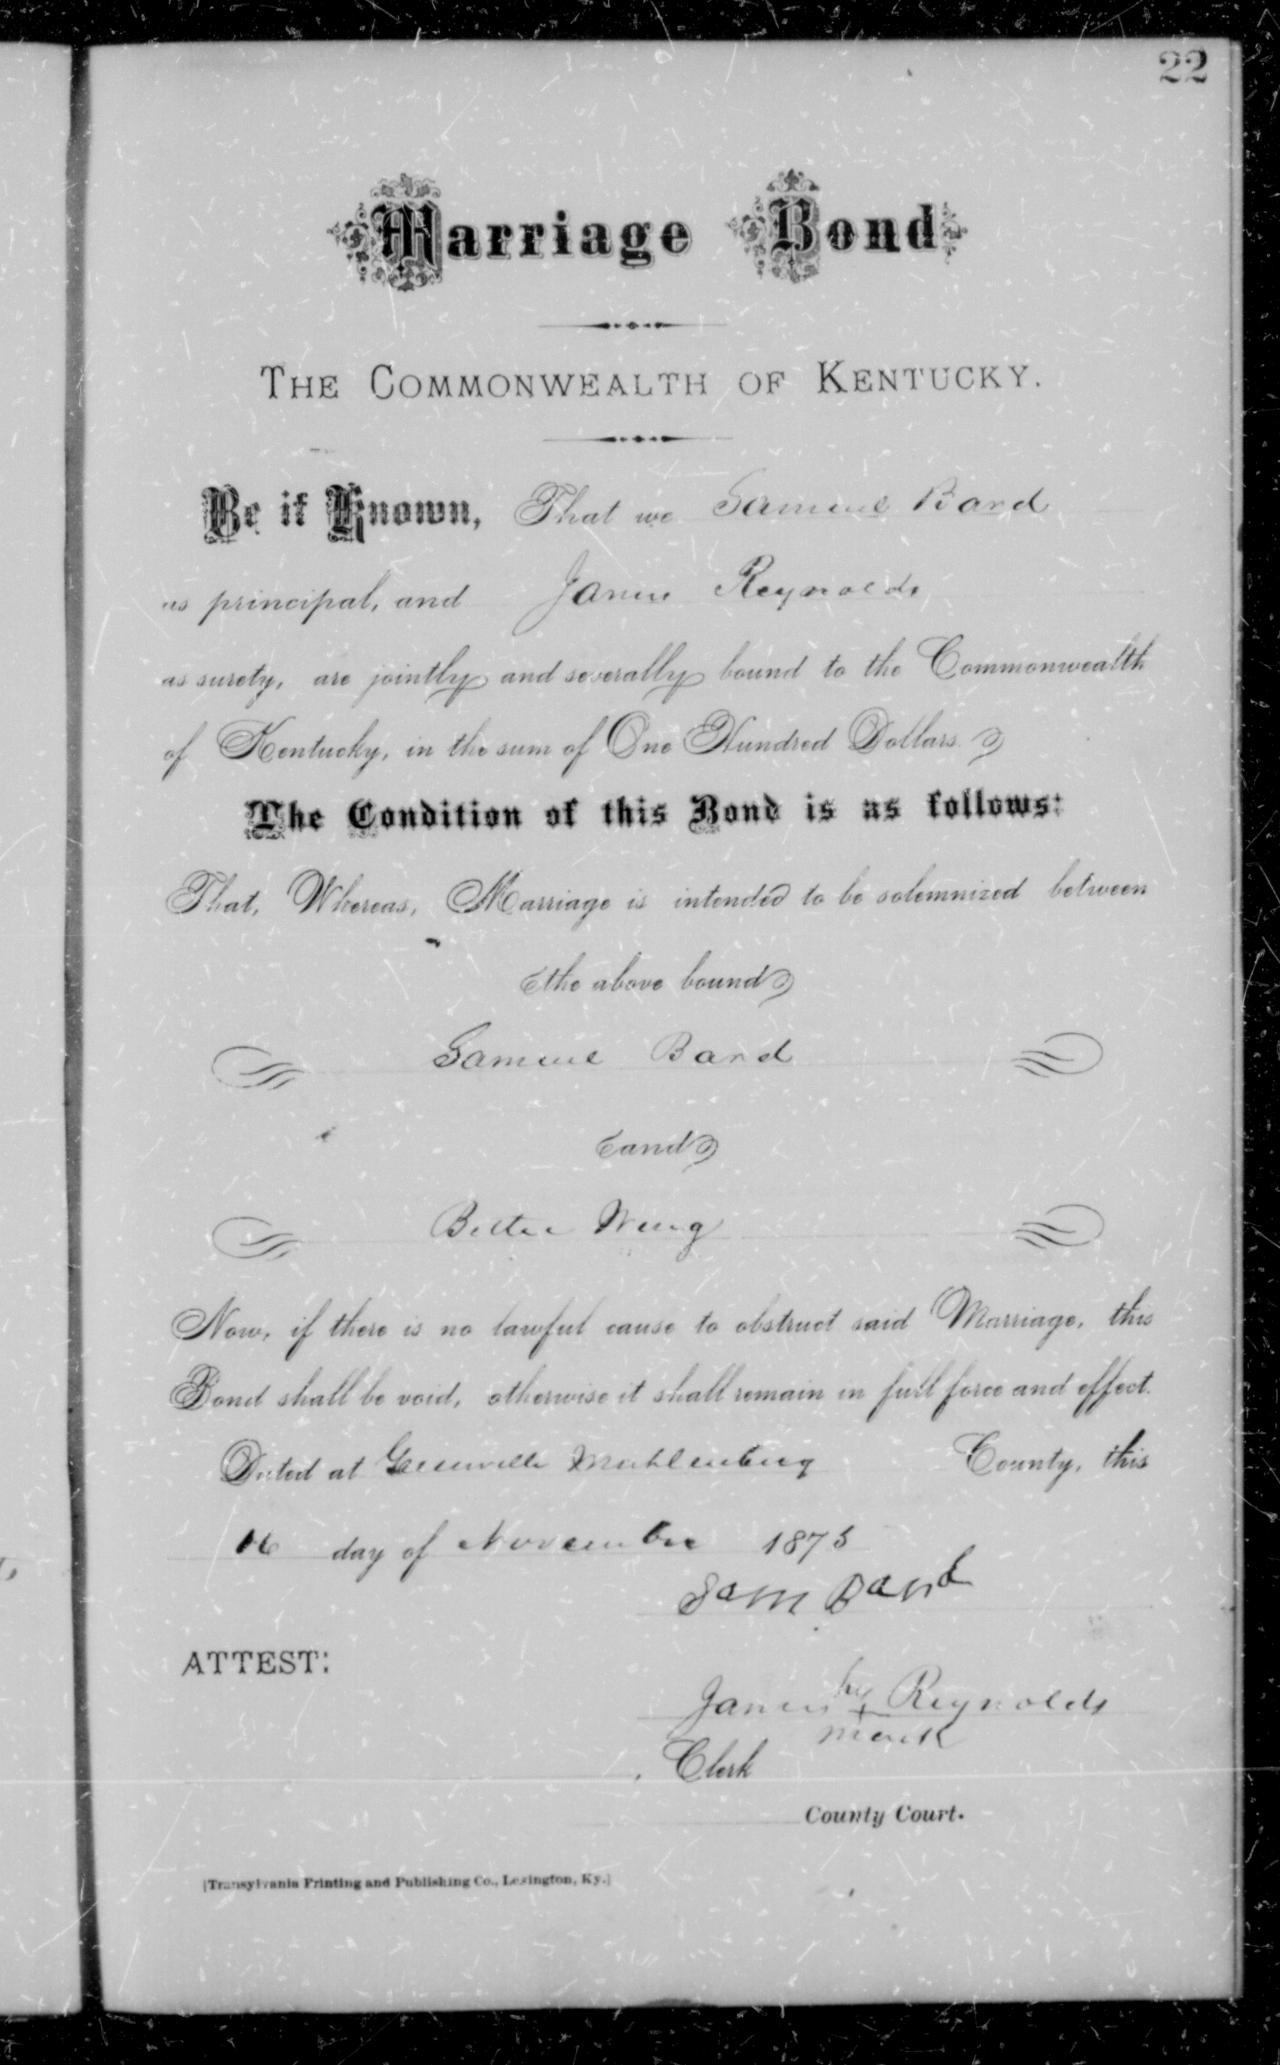 22
Marriage Bond
THE COMMONWEALTH OF KENTUCKY.
Be it Known, That we Samuel Bard
as principal, and James Reynolds
as surety, are jointly and severally bound to the Commonwealth
of Kentucky, in the sum of One Hundred Dollars.
The Condition of this Bond is as follows:
That, Whereas, Marriage is intended to be solemnized between
the above bound
Samuel Bard
and
Bettie Wing
Now, if there is no lawful cause to obstruct said Marriage, this
Bond shall be void, otherwise it shall remain in full force and effect.
Dated at Greenville Muhlenburg County, this
16 day of November 1875
Sam Bard
ATTEST:
James his x Reynolds
mark
Clerk
County Court.
[Transylvania Printing and Publishing Co., Lexington, Ky.]